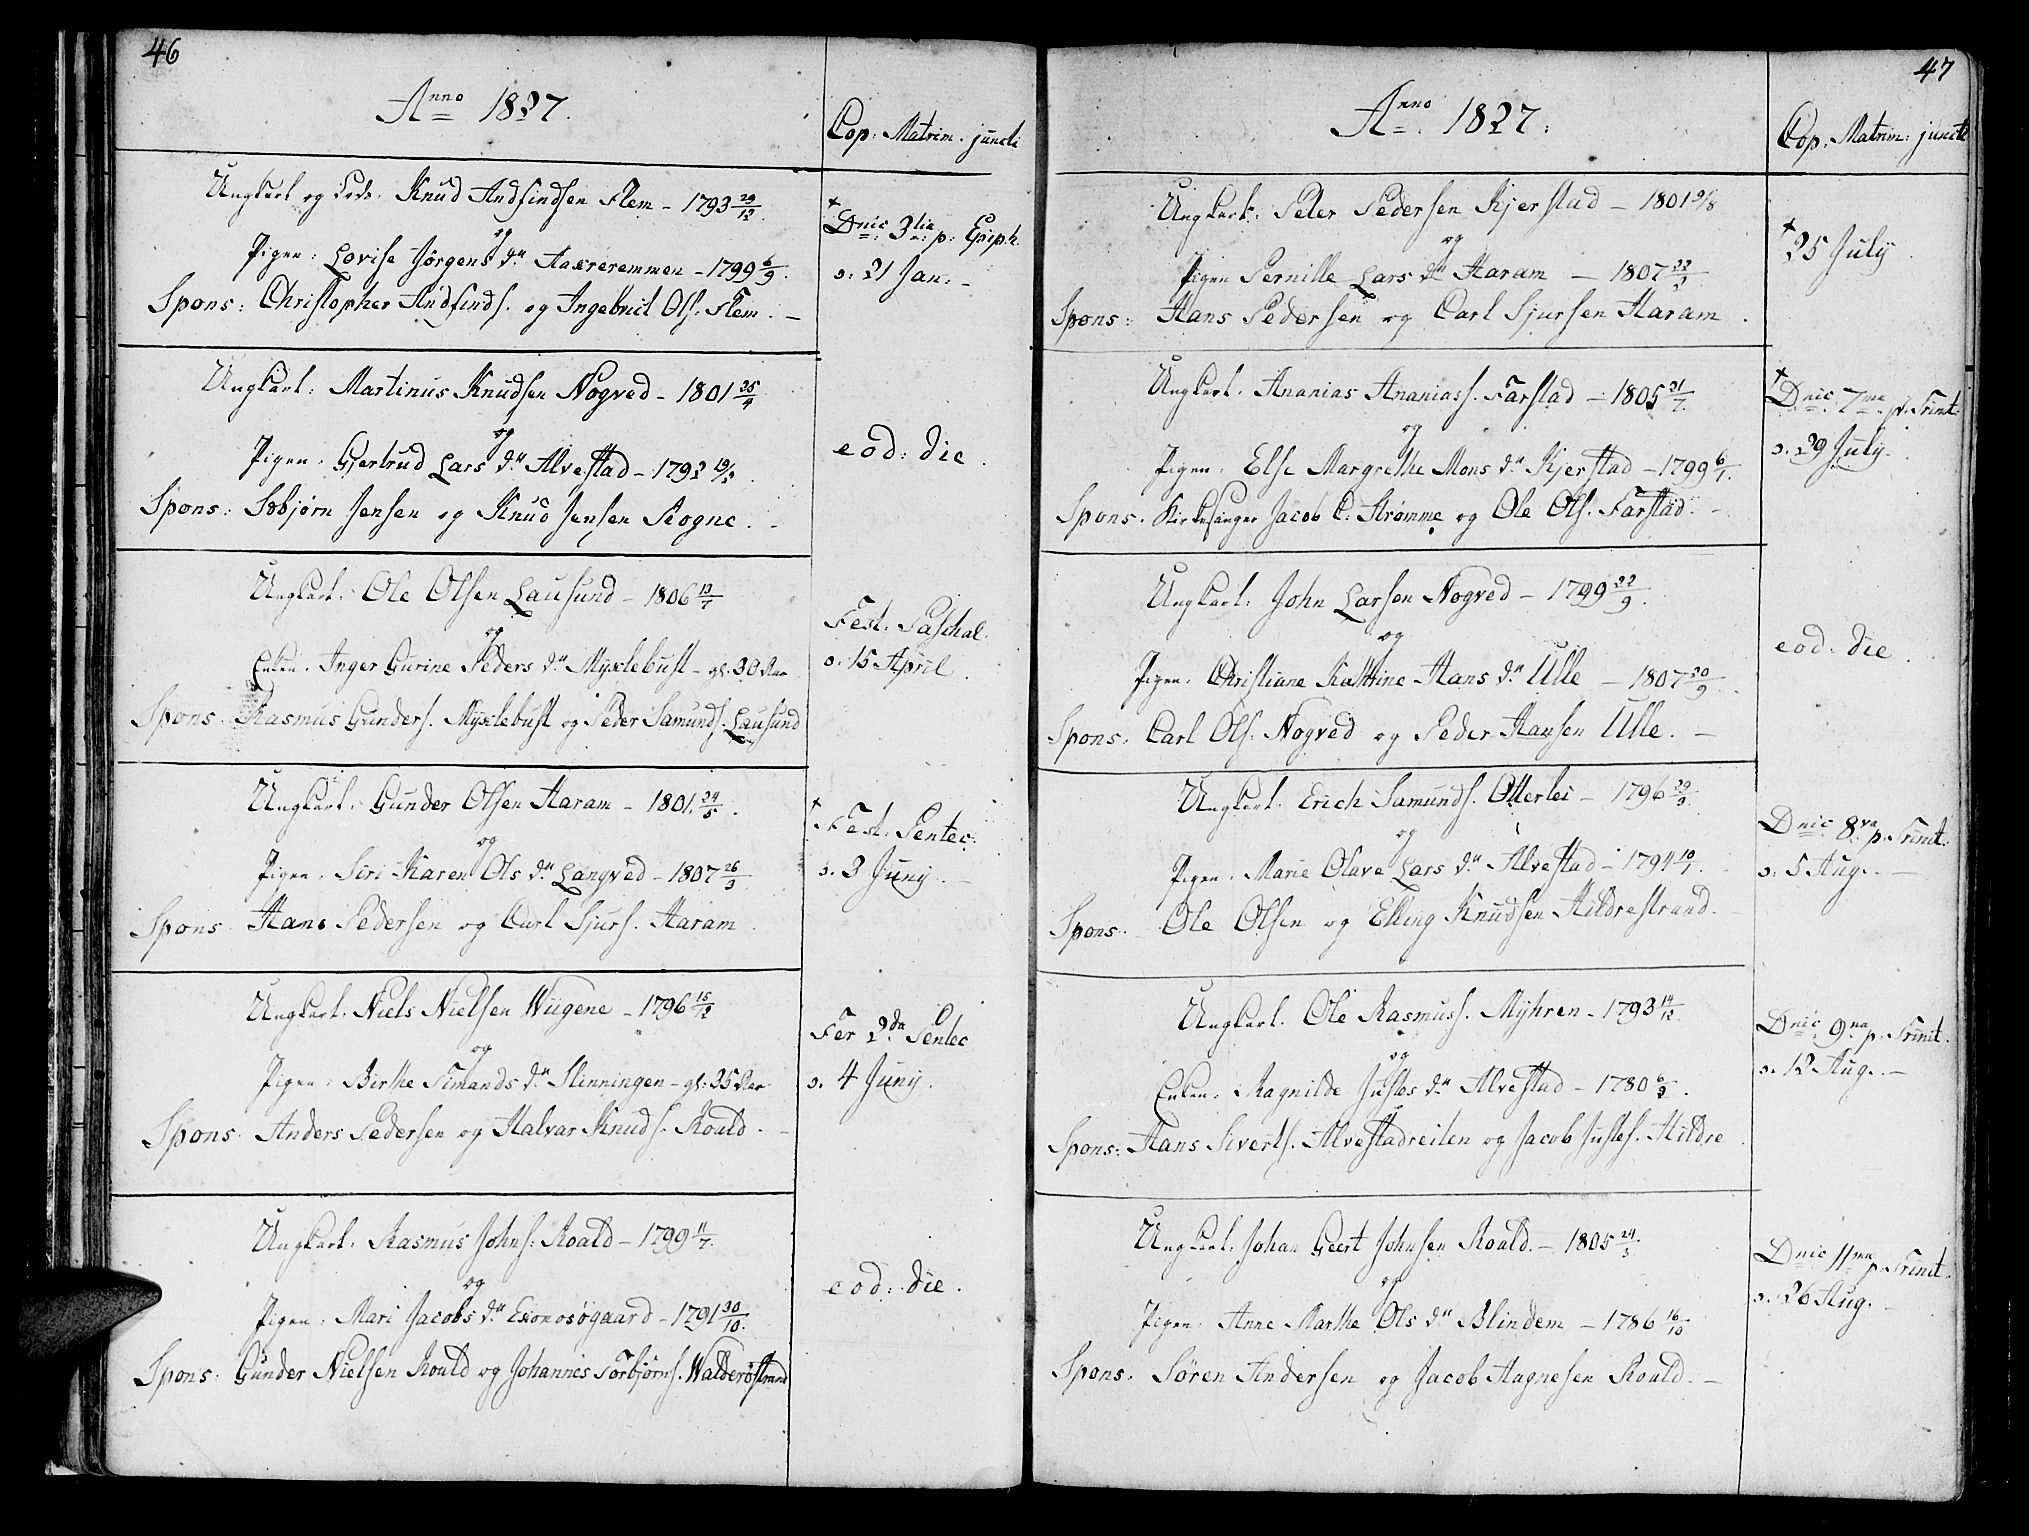 46
Anno 1827.
Cop: Matrim. juncti
Ungkarl og Knud Andfindsen Flem - 1793 29/12.
og
Pigen: Lovise Jørgens dr Aaxreremmen - 1799 6/9.
Spons: Christopher Andfinds. og Ingebrict Ols. Flem.
Dnic 3tia p: Epiph.
o: 21 Jan:
Ungkarl: Martinus Knudsen Nogved - 1801 25/4
og
Pigen: Gjertrud Lars dr Alvestad - 1792
Spons: Sobjørn Jensen og Knud Jensen Rogne.
eod: die.
Ungkarl: Ole Olsen Lausund - 1806 13/7
og
Enken: Inger Gurine Peders dr Myxlebust - gl. 30 Aar
Spons Rasmus Gunders. Myxlebust og Peder Samunds. Lausund
Fest: Paschal.
o: 15 April
Ungkarl: Gunder Olsen Haram - 1801. 24/5.
og
Pigen: Siri Karen Ols dr Langved - 1807 26/3
Spons. Hans Pedersen og Carl Sjurs. Haram.
Fest: Pentec:
o. 3 Juny.
Ungkarl. Niels Nielsen Wiigene - 1796 15/12
og
Pigen: Birthe Simands dr Slinningen - gl: 35 Aar
Spons. Anders Pedersen og Halvar Knuds. Roald.
Fer 2da Pentec
o. 4 Juny.
Ungkarl. Rasmus Johns: Roald - 1799 11/7.
og
Pigen: Mari Jacobs dr Exonosøgaard - 1791 30/10.
Spons: Gunder Nielsen Roald og Johannes Torbjørns. Walderøstrand
eod: die.
47
Anno 1827.
Cop: Matrim: juncti
Ungkarl: Peter Pedersen Kjerstad - 1801 9/8
og
Pigen Pernille Lars dr Haram - 1807 22/3
Spons: Hans Pedersen og Carl Sjursen Haram.
25 July.
Ungkarl. Ananias Ananiass. Farstad - 1805 21/7.
og
Pigen: Else Margrethe Mons dr Kjerstad - 1799 6/7.
Spons. Kirkesanger Jacob C. Strømme og Ole Ols. Farstad.
Dnic 7ma p. Trint.
o. 29 July.
Ungkarl: John Larsen Nogved - 1799 22/9.
og
Pigen. Christiane Kathrine Hans dr Ulle - 1807 20/9.
Spons. Carl Ols. Nogved og Peder Hansen Ulle.
eod: die.
Ungkarl. Erich Samunds. Otterlei - 1796 29/9.
og
Pigen. Marie Olave Lars dr Alvestad - 1794 10/7.
Spons Ole Olsen og Elling Knudsen Hildrestrand.
Dnic 8va p. Trinit.
o: 5 Aug.
Ungkarl. Ole Rasmuss. Myhren - 1793 14/12.
og
Enken: Ragnilde Justes dr Alvestad - 1780 6/2.
Spons: Hans Siverts. Alvestadreiten og Jacob Justes. Hildre.
Dnic 9na p. Trinit.
o. 12 Aug.
Ungkarl. Johan Geert Johnsen Roald. - 1805 24/3.
og
Pigen: Anne Marthe Ols dr Blindem - 1786 16/10
Spons. Søren Andersen og Jacob Hagnesen Roald.
Dnic 11ma p. Trinit.
o. 26 Aug.